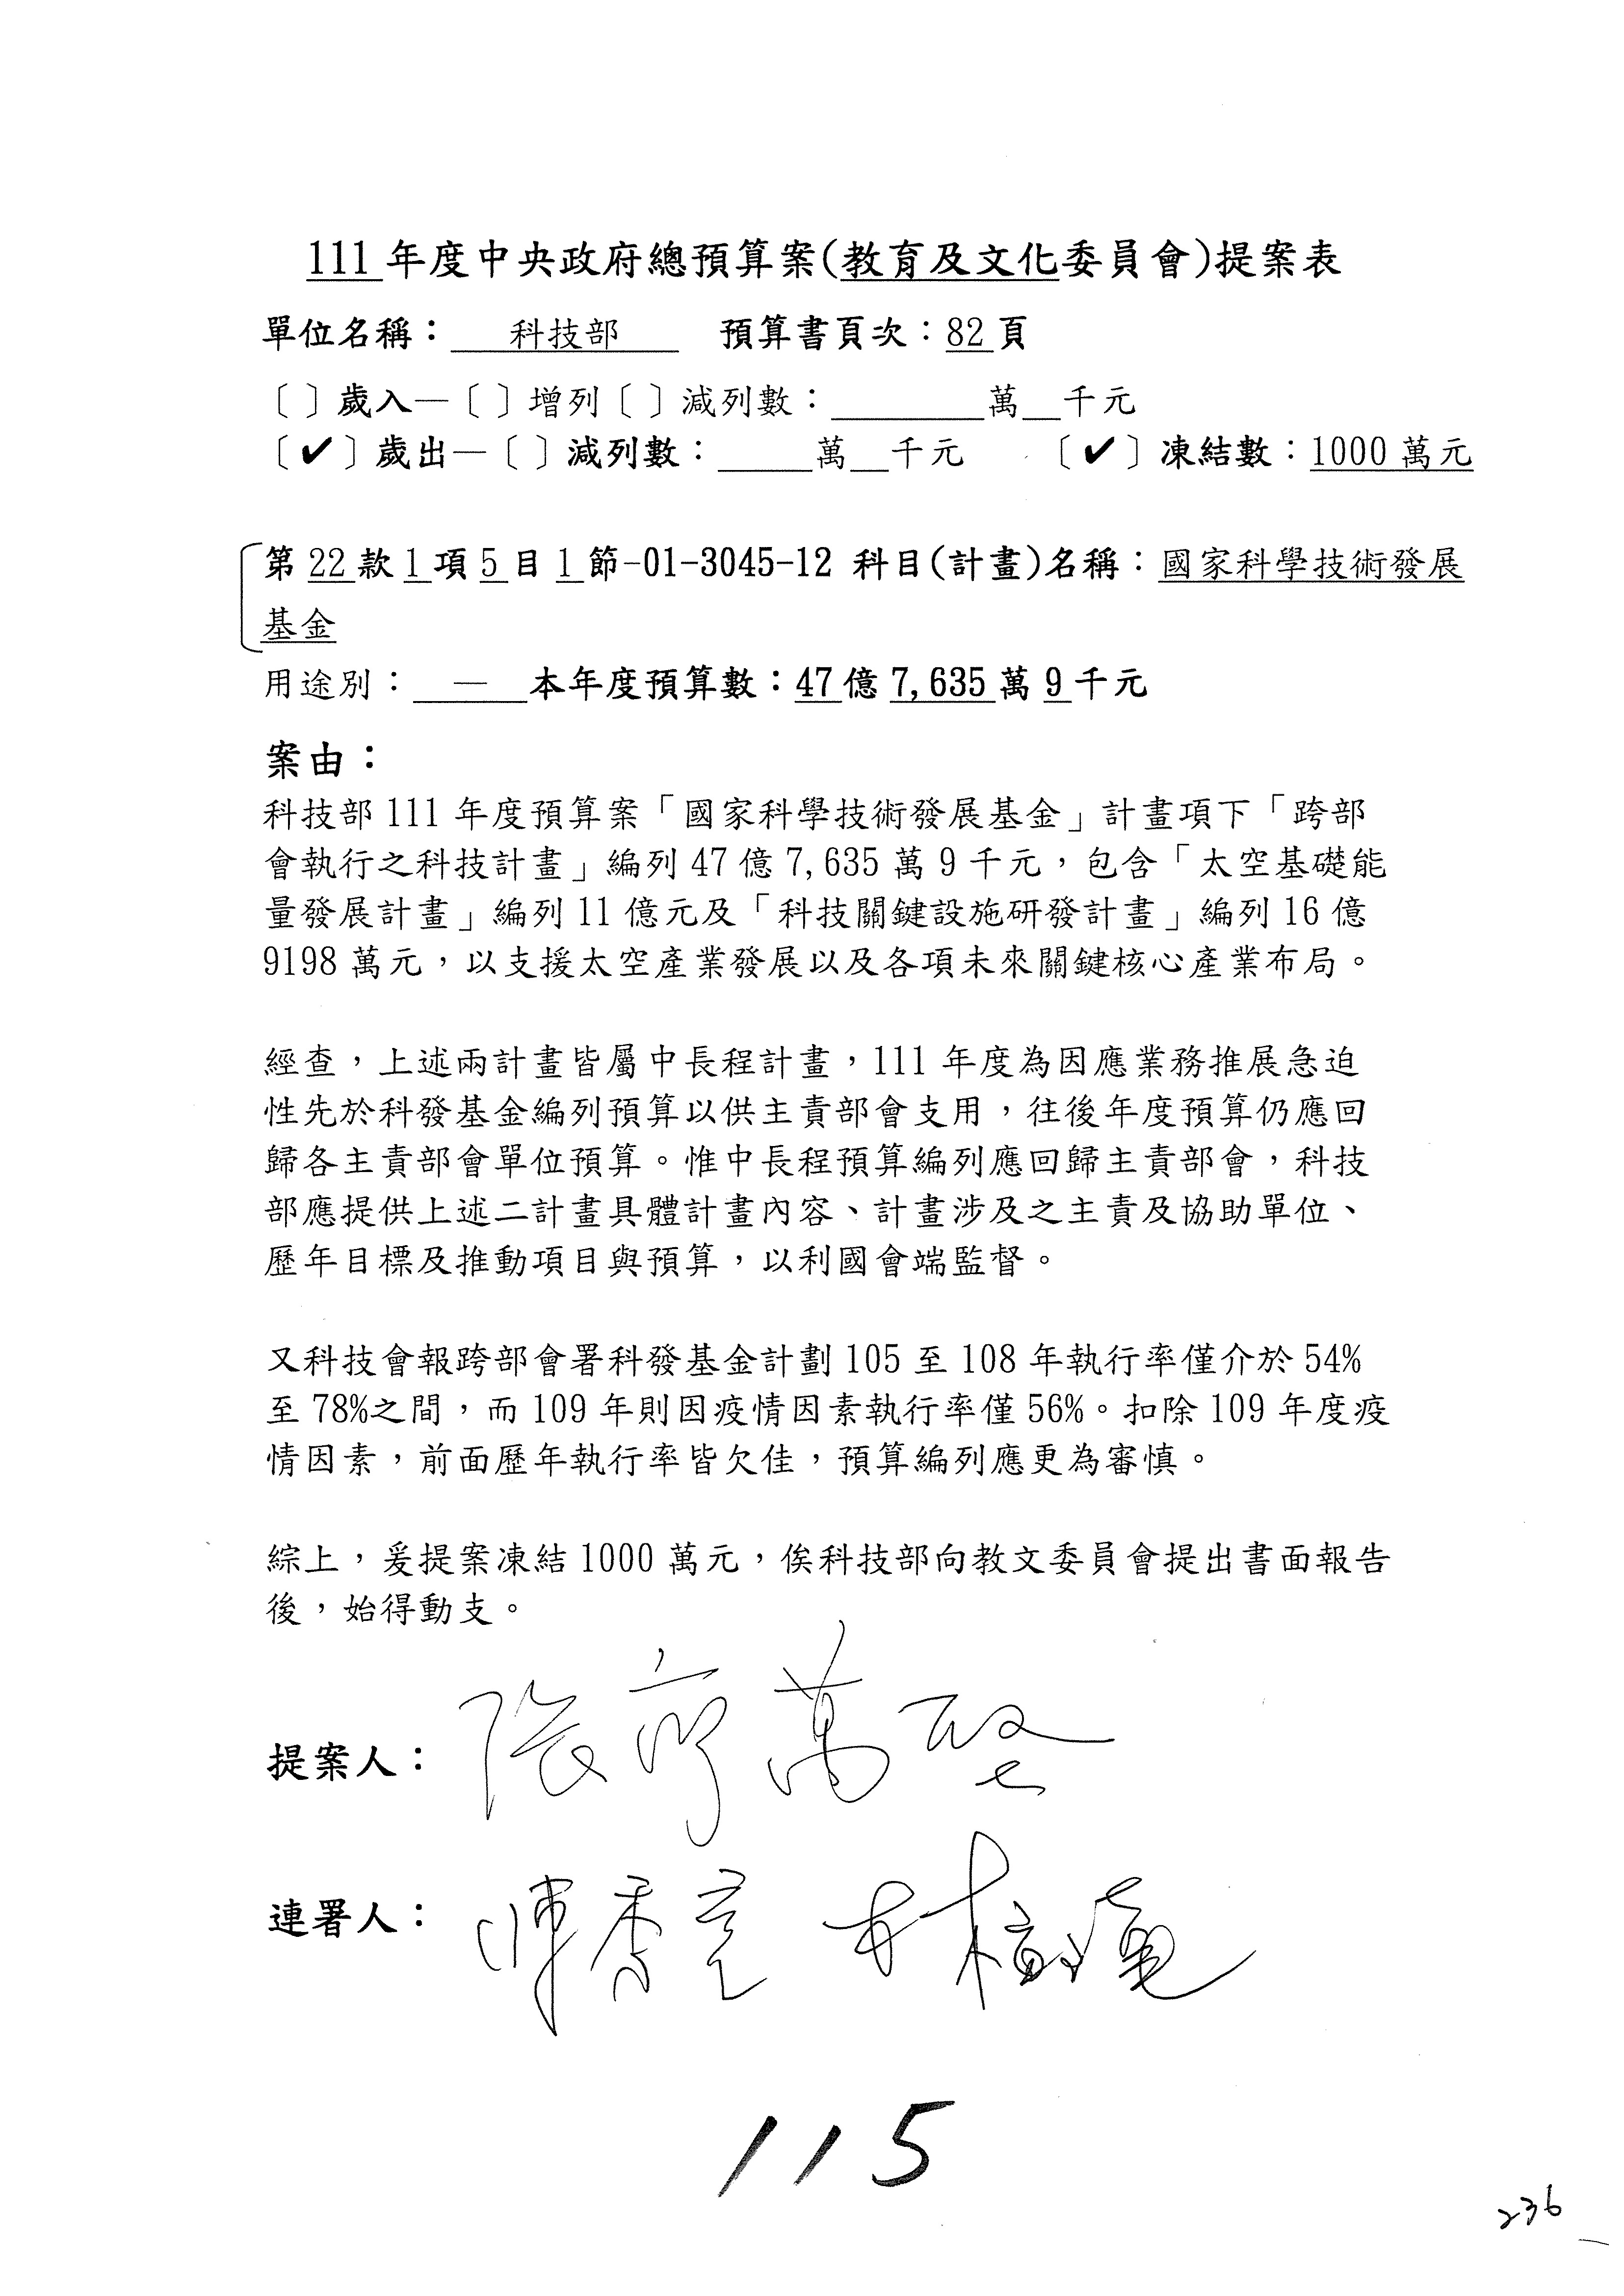 111 年度中央政府總預算案(教育及文化委員會)提案表
單位名稱：　科技部　預算書頁次：82 頁
〔 〕歲入—〔 〕增列〔 〕減列數：________萬__千元
〔✔〕歲出—〔 〕減列數：_____萬__千元　〔✔〕凍結數：1000 萬元
第 22 款 1 項 5 目 1 節-01-3045-12 科目(計畫)名稱：國家科學技術發展
基金
用途別：　—　本年度預算數：47 億 7,635 萬 9 千元
案由：
科技部 111 年度預算案「國家科學技術發展基金」計畫項下「跨部
會執行之科技計畫」編列 47 億 7,635 萬 9 千元，包含「太空基礎能
量發展計畫」編列 11 億元及「科技關鍵設施研發計畫」編列 16 億
9198 萬元，以支援太空產業發展以及各項未來關鍵核心產業布局。
經查，上述兩計畫皆屬中長程計畫，111 年度為因應業務推展急迫
性先於科發基金編列預算以供主責部會支用，往後年度預算仍應回
歸各主責部會單位預算。惟中長程預算編列應回歸主責部會，科技
部應提供上述二計畫具體計畫內容、計畫涉及之主責及協助單位、
歷年目標及推動項目與預算，以利國會端監督。
又科技會報跨部會署科發基金計劃 105 至 108 年執行率僅介於 54%
至 78%之間，而 109 年則因疫情因素執行率僅 56%。扣除 109 年度疫
情因素，前面歷年執行率皆欠佳，預算編列應更為審慎。
綜上，爰提案凍結 1000 萬元，俟科技部向教文委員會提出書面報告
後，始得動支。
提案人：張廖萬堅
連署人：陳秀寳
115
236